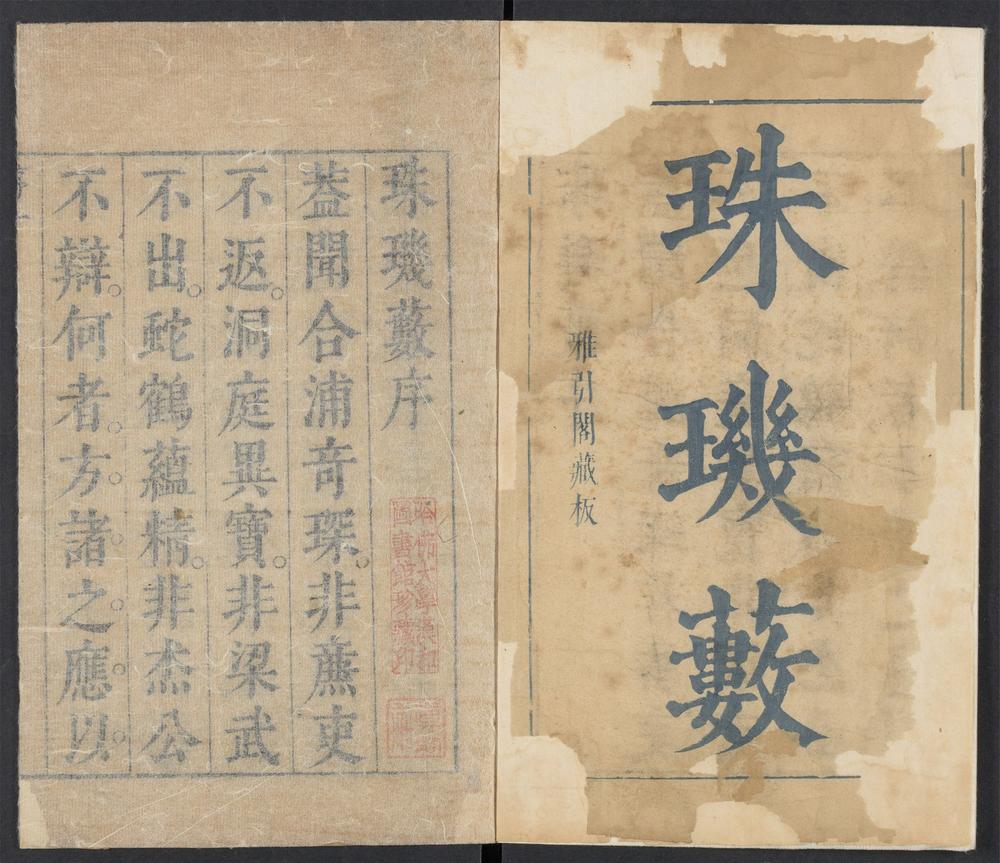 珠璣藪
雅引閣藏板
珠璣藪序
葢聞合浦奇琛。非廉吏
不返。洞庭異寶。非梁武
不出。蛇鶴蘊精。非杰公
不辯。何者。方。諸。之。應。以。
哈佛大學漢和
圖書館珍藏印